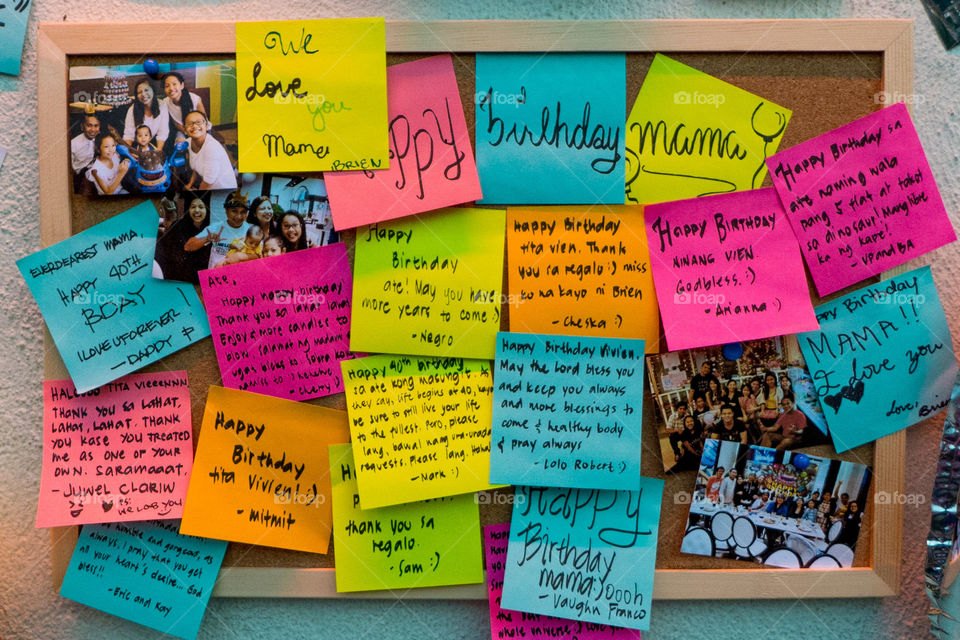 We
Love
you
Mama
BRIEN
Happy
birthday
mama
Happy Birthday sa
ate naming wala
pang 5 flat at takot
sa dinosaur! Manglibre
ka ng kape!
- VP and BA
EVERDEAREST MAMA,
HAPPY 40TH
BDAY!
I LOVE U FOREVER!
- DADDY
Ate,
Happy happy birthday!
Thank you sa lahat lahat
Enjoy & more candles to
blow.
Happy
Birthday
ate! May you have
more years to come :)
- Negro
Happy Birthday
tita vien. Thank
you sa regalo :) miss
ko na kayo ni Brien
- Cheska :)
Happy Birthday
NINANG VIEN.
Godbless. :)
- Arianna :)
Happy Birthday
MAMA!!
I love you
Love,
Brien
HALOOOO TITA VIEEENNN
THANK YOU SA LAHAT,
LAHAT, LAHAT. THANK
YOU KASE YOU TREATED
ME AS ONE OF YOUR
OWN. SARAMAAAT.
- JUWEL CLARIW
PS:
WE LOVE YOU
Happy
Birthday
tita Vivien!
- mitmit
Happy 40th Birthday
sa ate kong masungit. As
they say, life begins at 40, kaya
be sure to still live your life
to the fullest. Pero, please
lang, bawal nang
requests. Please lang. Haha
- Nark :)
Happy Birthday Vivien,
May the Lord bless you
and keep you always
and more blessings to
come & healthy body
& pray always
- Lolo Robert :)
thank you sa
regalo.
- Sam :)
Happy
Birthday
mama:)oooh
- Vaughn Franco
always, I pray that you get
all your heart's desire... God
bless!!
- Eric and Kay
whole universe